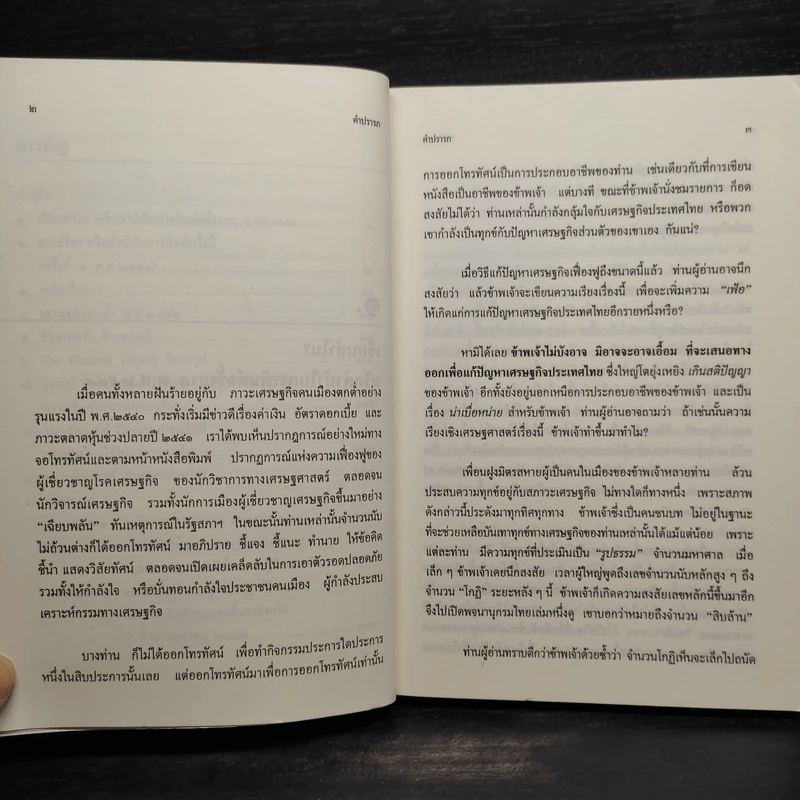 ๒
คำปรารภ
เมื่อคนทั้งหลายฝันร้ายอยู่กับ ภาวะเศรษฐกิจคนเมืองตกต่ำอย่าง
รุนแรงในปี พ.ศ.๒๕๔๐ กระทั่งเริ่มมีข่าวดีเรื่องค่าเงิน อัตราดอกเบี้ย และ
ภาวะตลาดหุ้นช่วงปลายปี ๒๕๔๑ เราได้พบเห็นปรากฏการณ์อย่างใหม่ทาง
จอโทรทัศน์และตามหน้าหนังสือพิมพ์ ปรากฏการณ์แห่งความเฟื่องฟูของ
ผู้เชี่ยวชาญโรคเศรษฐกิจ ของนักวิชาการทางเศรษฐศาสตร์ ตลอดจน
นักวิจารณ์เศรษฐกิจ รวมทั้งนักการเมืองผู้เชี่ยวชาญเศรษฐกิจขึ้นมาอย่าง
“เฉียบพลัน” ทันเหตุการณ์ในรัฐสภาฯ ในขณะนั้นท่านเหล่านั้นจำนวนนับ
ไม่ถ้วนต่างก็ได้ออกโทรทัศน์ มาอภิปราย ชี้แจง ชี้แนะ ทำนาย ให้ข้อคิด
ชี้นำ แสดงวิสัยทัศน์ ตลอดจนเปิดเผยเคล็ดลับในการเอาตัวรอดปลอดภัย
รวมทั้งให้กำลังใจ หรือบั่นทอนกำลังใจประชาชนคนเมือง ผู้กำลังประสบ
เคราะห์กรรมทางเศรษฐกิจ
บางท่าน ก็ไม่ได้ออกโทรทัศน์ เพื่อทำกิจกรรมประการใดประการ
หนึ่งในสิบประการนั้นเลย แต่ออกโทรทัศน์มาเพื่อการออกโทรทัศน์เท่านั้น
คำปรารภ
๓
การออกโทรทัศน์เป็นการประกอบอาชีพของท่าน เช่นเดียวกับที่การเขียน
หนังสือเป็นอาชีพของข้าพเจ้า แต่บางที ขณะที่ข้าพเจ้านั่งชมรายการ ก็อด
สงสัยไม่ได้ว่า ท่านเหล่านั้นกำลังกลุ้มใจกับเศรษฐกิจประเทศไทย หรือพวก
เขากำลังเป็นทุกข์กับปัญหาเศรษฐกิจส่วนตัวของเขาเอง กันแน่?
เมื่อวิธีแก้ปัญหาเศรษฐกิจเฟื่องฟูถึงขนาดนี้แล้ว ท่านผู้อ่านอาจนึก
สงสัยว่า แล้วข้าพเจ้าจะเขียนความเรียงเรื่องนี้ เพื่อจะเพิ่มความ “เฟ้อ”
ให้เกิดแก่การแก้ปัญหาเศรษฐกิจประเทศไทยอีกรายหนึ่งหรือ?
หามิได้เลย ข้าพเจ้าไม่บังอาจ มิอาจจะอาจเอื้อม ที่จะเสนอทาง
ออกเพื่อแก้ปัญหาเศรษฐกิจประเทศไทย ซึ่งใหญ่โตยุ่งเหยิง เกินสติปัญญา
ของข้าพเจ้า อีกทั้งยังอยู่นอกเหนือการประกอบอาชีพของข้าพเจ้า และเป็น
เรื่อง น่าเบื่อหน่าย สำหรับข้าพเจ้า ท่านผู้อ่านอาจถามว่า ถ้าเช่นนั้นความ
เรียงเชิงเศรษฐศาสตร์เรื่องนี้ ข้าพเจ้าทำขึ้นมาทำไม?
เพื่อนฝูงมิตรสหายผู้เป็นคนในเมืองของข้าพเจ้าหลายท่าน ล้วน
ประสบความทุกข์อยู่กับสภาวะเศรษฐกิจ ไม่ทางใดก็ทางหนึ่ง เพราะสภาพ
ดังกล่าวนี้ประดังมาทุกทิศทุกทาง ข้าพเจ้าซึ่งเป็นคนชนบท ไม่อยู่ในฐานะ
ที่จะช่วยเหลือบันเทาทุกข์ทางเศรษฐกิจของท่านเหล่านั้นได้แม้แต่น้อย เพราะ
แต่ละท่าน มีความทุกข์ที่ประเมินเป็น “รูปธรรม” จำนวนมหาศาล เมื่อ
เล็ก ๆ ข้าพเจ้าเคยนึกสงสัย เวลาผู้ใหญ่พูดถึงเลขจำนวนนับหลักสูง ๆ ถึง
จำนวน “โกฏิ” ระยะหลัง ๆ นี้ ข้าพเจ้าก็เกิดความสงสัยเลขหลักนี้ขึ้นมาอีก
จึงไปเปิดพจนานุกรมไทยเล่มหนึ่งดู เขาบอกว่าหมายถึงจำนวน “สิบล้าน”
ท่านผู้อ่านทราบดีกว่าข้าพเจ้าด้วยซ้ำว่า จำนวนโกฏิเห็นจะเล็กไปถนัด